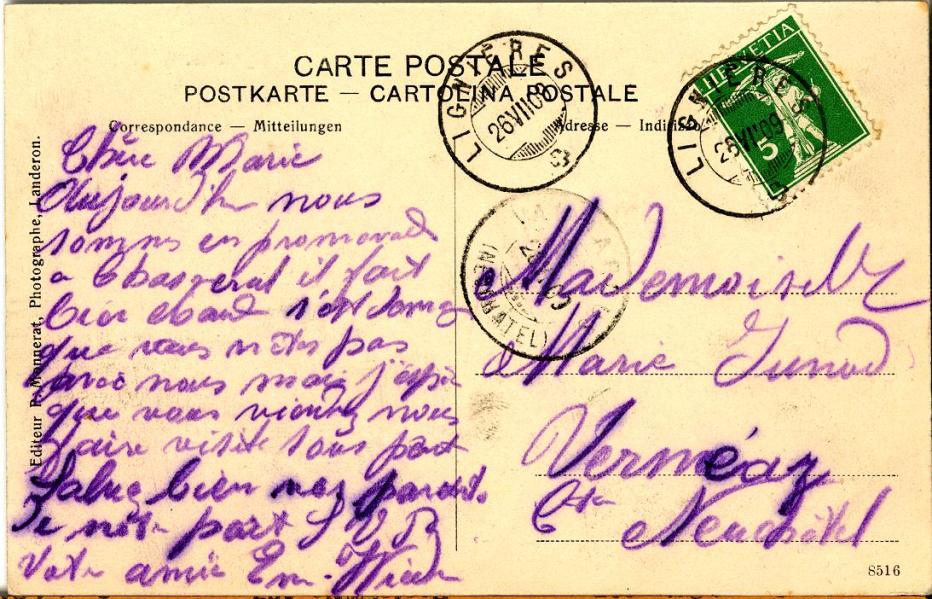 CARTE POSTALE
POSTKARTE — CARTOLINA POSTALE
Correspondance — Mitteilungen
Adresse — Indirizzo
LIGNIÈRES
26 VII 09
LIGNIÈRES
26 VII 09
HELVETIA
5
(NEUCHATEL)
Editeur R. Monnerat, Photographe, Landeron.
Chère Marie
Aujourd'hui nous
sommes en promenade
a il fait
bien chaud
que vous n'êtes pas
avec nous mais j'espère
que vous viendrez nous
faire visite sous peu
Salue bien vos parents
De nôtre part S V P
Votre amie Em.
Mademoiselle
Marie Junod
Verméaz
Ctn
Neuchâtel
8516